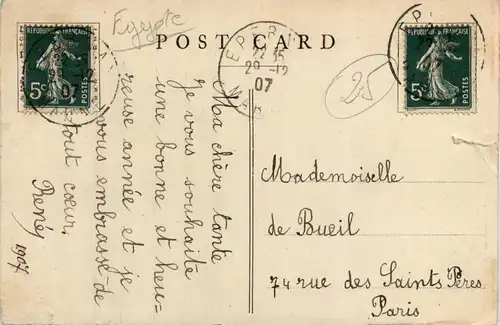 Egypte
POST CARD
REPUBLIQUE FRANÇAISE
5c
POSTES
REPUBLIQUE FRANÇAISE
5c
POSTES
EPER
29 -12
07
MAR
25
Ma chère tante
Je vous souhaite
une bonne et heu-
reuse année et je
vous embrasse de
tout cœur.
René
1907
Mademoiselle
de Bueil
74 rue des Saints Pères
Paris